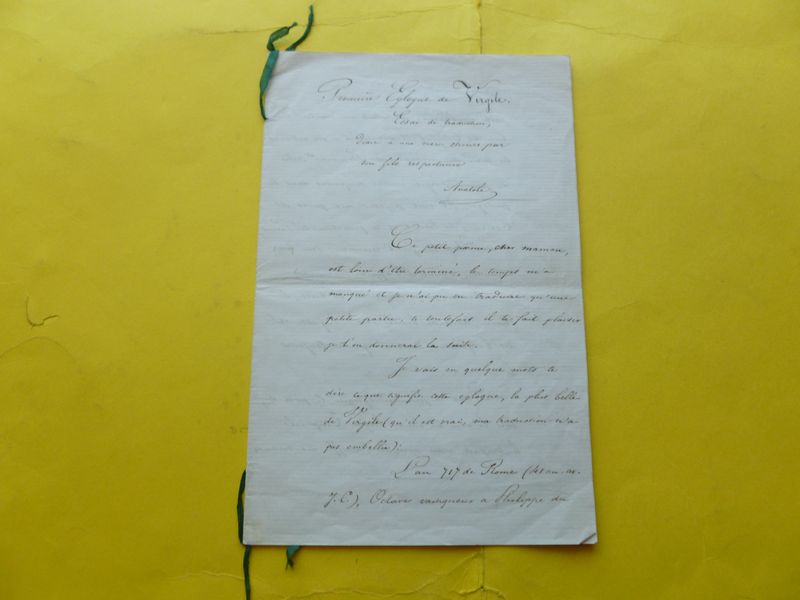 Première Eglogue de Virgile.
Essai de traduction,
Dédié à une mère chérie par
son fils respectueux
Anatole
Ce petit poème, chère maman,
est loin d'être terminé, le temps m'a
manqué et je n'ai pu en traduire qu'une
petite partie, si toutefois il te fait plaisir
je t'en donnerai la suite.
Je vais en quelque mots te
dire ce que signifie cette eglogue, la plus belle
de Virgile (qu'il est vrai, ma traduction n'a
pas embellie):
L'an 717 de Rome ( an av.
J. C.), Octave vainqueur a Philippe du